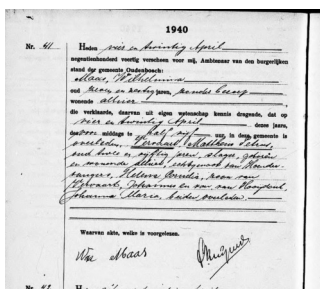 1940
Nr. 41 Heden vier en twintig April
negentienhonderd veertig verscheen voor mij, Ambtenaar van den burgerlijken
stand der gemeente Oudenbosch:
Maas, Wilhelmina
oud zeven en zestig jaren, zonder beroep
wonende alhier
die verklaarde, daarvan uit eigen wetenschap kennis dragende, dat op
vier en twintig April dezes jaars,
des voor middags te half uur, in deze gemeente is
overleden, Vervaart, Mattheus Petrus,
oud twee en vijftig jaren, slager, geboren
en wonende alhier, echtgenoot van
Helena Cornelia, zoon van
Vervaart, Johannes en van van
Johanna Maria, beiden overleden
Waarvan akte, welke is voorgelezen.
Maas
Nr. 42